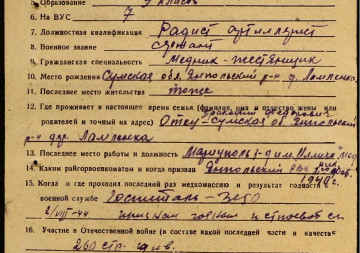 5. Образование 7 классов
6. На ВУС 7
7. Должностная квалификация Радист артиллерист
8. Военное звание сержант
9. Гражданская специальность Медник-жестянщик
10. Место рождения Сумская обл. Ямпольский р-н
11. Последнее место жительства тоже
12. Где проживает в настоящее время семья (фамилия, имя и отчество жены или
родителей и точный их адрес) Отец-Сумская об Ямпольский
р-н дер.
13. Последнее место работы и должность Мариуполь з-д им. Ильича мед.
14. Каким райгорвоенкоматом и когда призван Ямпольский РВК
1940 г.
15. Когда и где проходил последний раз медкомиссию и результат годности к
военной службе Госпиталь-
2/VIII-44 признан годным к строевой сл.
16. Участие в Отечественной войне (в составе какой последней части и в качестве
260 стр. див.